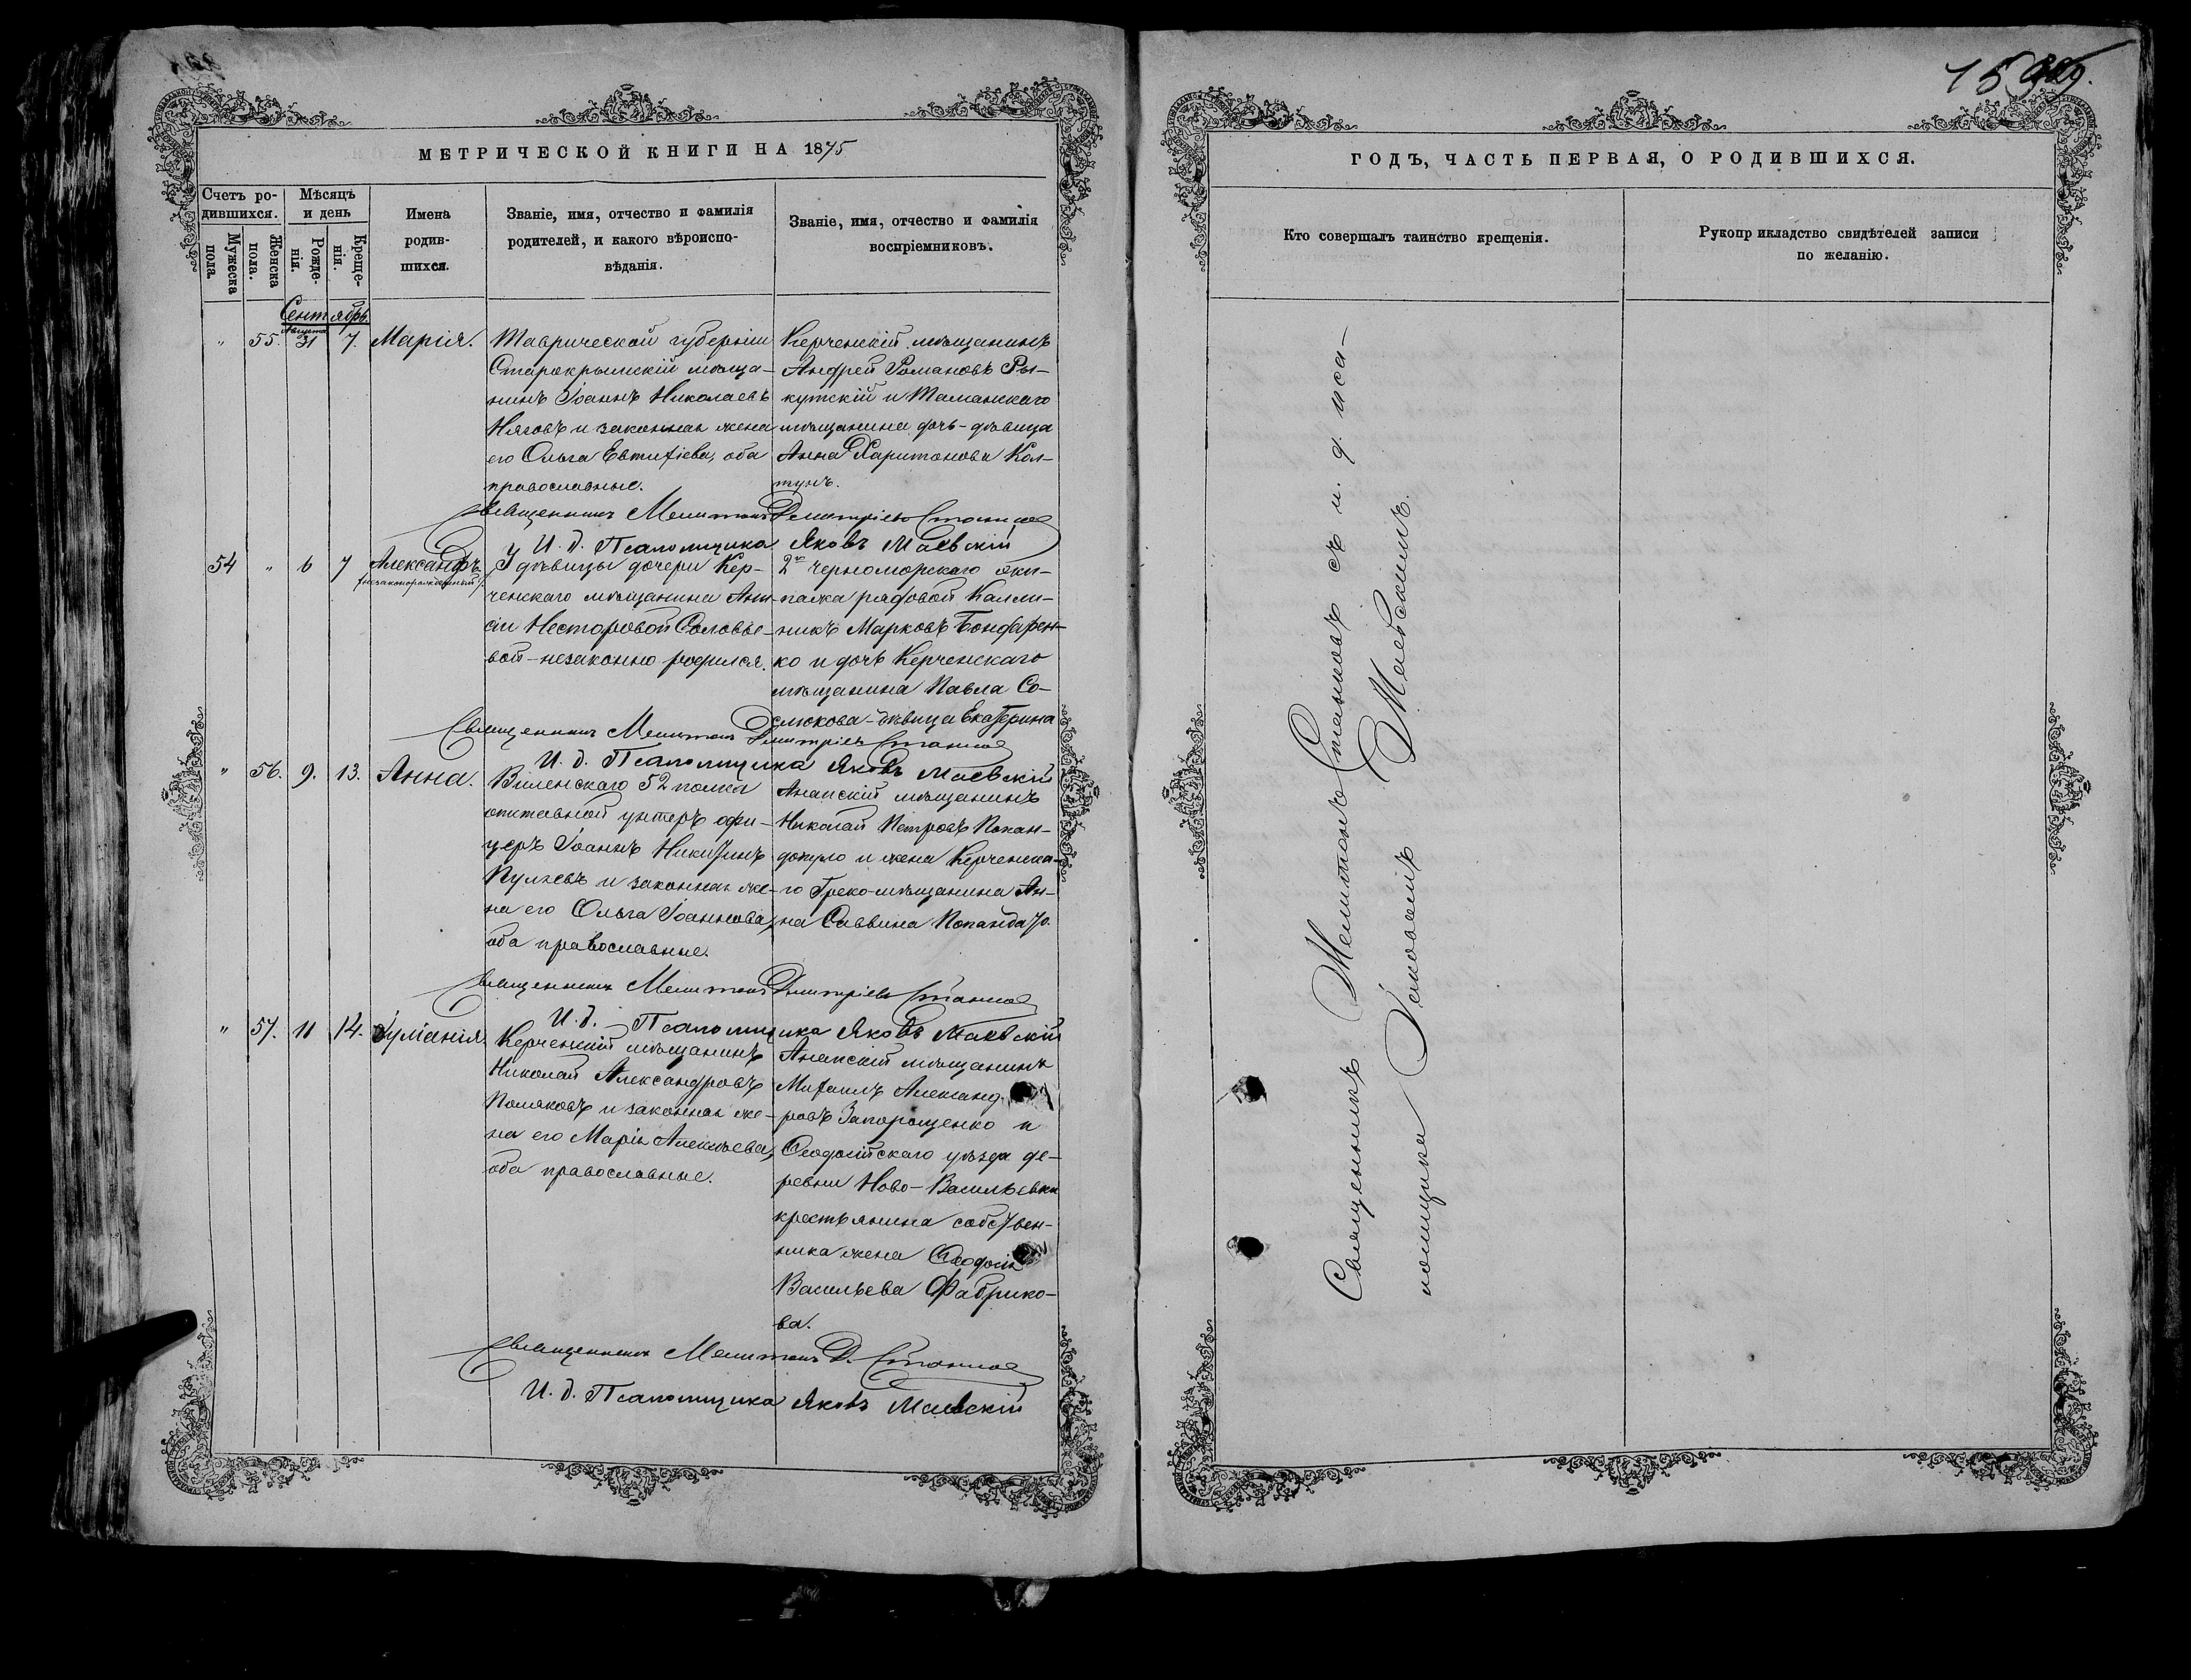 МЕТРИЧЕСКОЙ КНИГИ НА 1875
Счетъ ро-
дившихся.
Мужеска
пола.
Женска
пола.
Мѣсяцъ
и день
Рожде-
нія.
Креще-
нія.
Имена
родив-
шихся.
Званіе, имя, отчество и фамилія
родителей, и какого вѣроиспо-
вѣданія.
Званіе, имя, отчество и фамилія
воспріемниковъ.
Сентябрь.
" 55. Августа 31 7. Марія.
Таврической губерніи
Старокрымскій мѣща-
нинъ Іоаннъ Николаевъ
Няговъ и законная жена
его Ольга Евтихіева, оба
православные.
Керченскій мѣщанинъ
Андрей Романовъ Ры-
кутскій и Таманскаго
мѣщанина дочь-дѣвица
Анна Харитонова Кол-
тунъ.
Священникъ Мелитонъ Димитріевъ Станковъ
И. д. Псаломщика Яковъ Маевскій
54 " 6 7 Александръ
/незаконорожденный/
У дѣвицы дочери Кер-
ченскаго мѣщанина Ани-
сіи Несторовой Соловье-
вой - незаконно родился.
2го Черноморскаго эки-
пажа рядовой Калли-
никъ Марковъ Бондарен-
ко и дочь Керченскаго
мѣщанина Павла Со-
слюкова - дѣвица Екатерина
Священникъ Мелитонъ Димитріевъ Станковъ
И. д. Псаломщика Яковъ Маевскій
" 56. 9. 13. Анна.
Виленскаго 52 полка
отставной унтеръ офи-
церъ Іоаннъ Никитинъ
Пулаевъ и законная же-
на его Ольга Іоаннова,
оба православные.
Анапскій мѣщанинъ
Николай Петровъ Попан-
допуло и жена Керченска-
го Греко-мѣщанина Ан-
на Саввина Попандо/ло.
Священникъ Мелитонъ Димитріевъ Станковъ
И. д. Псаломщика Яковъ Маевскій
" 57. 11 14. Іуліанія.
Керченскій мѣщанинъ
Николай Александровъ
Поляковъ и законная же-
на его Марія Алексѣева,
оба православные.
Анапскій мѣщанинъ
Михаилъ Александ-
ровъ Запорощенко и
Ѳеодосійскаго уѣзда де-
ревни Ново-Васильевки
крестьянина собствен-
ника жена Ѳеодосія
Васильева Фабрико-
ва.
Священникъ Мелитонъ Д. Станковъ
И. д. Псаломщика Яковъ Маевскій
ГОДЪ, ЧАСТЬ ПЕРВАЯ, О РОДИВШИХСЯ.
Кто совершалъ таинство крещенія.
Рукоприкладство свидѣтелей записи
по желанію.
Священникъ Мелитонъ Станковъ съ и. д. пса-
ломщика Яковомъ Маевскимъ.